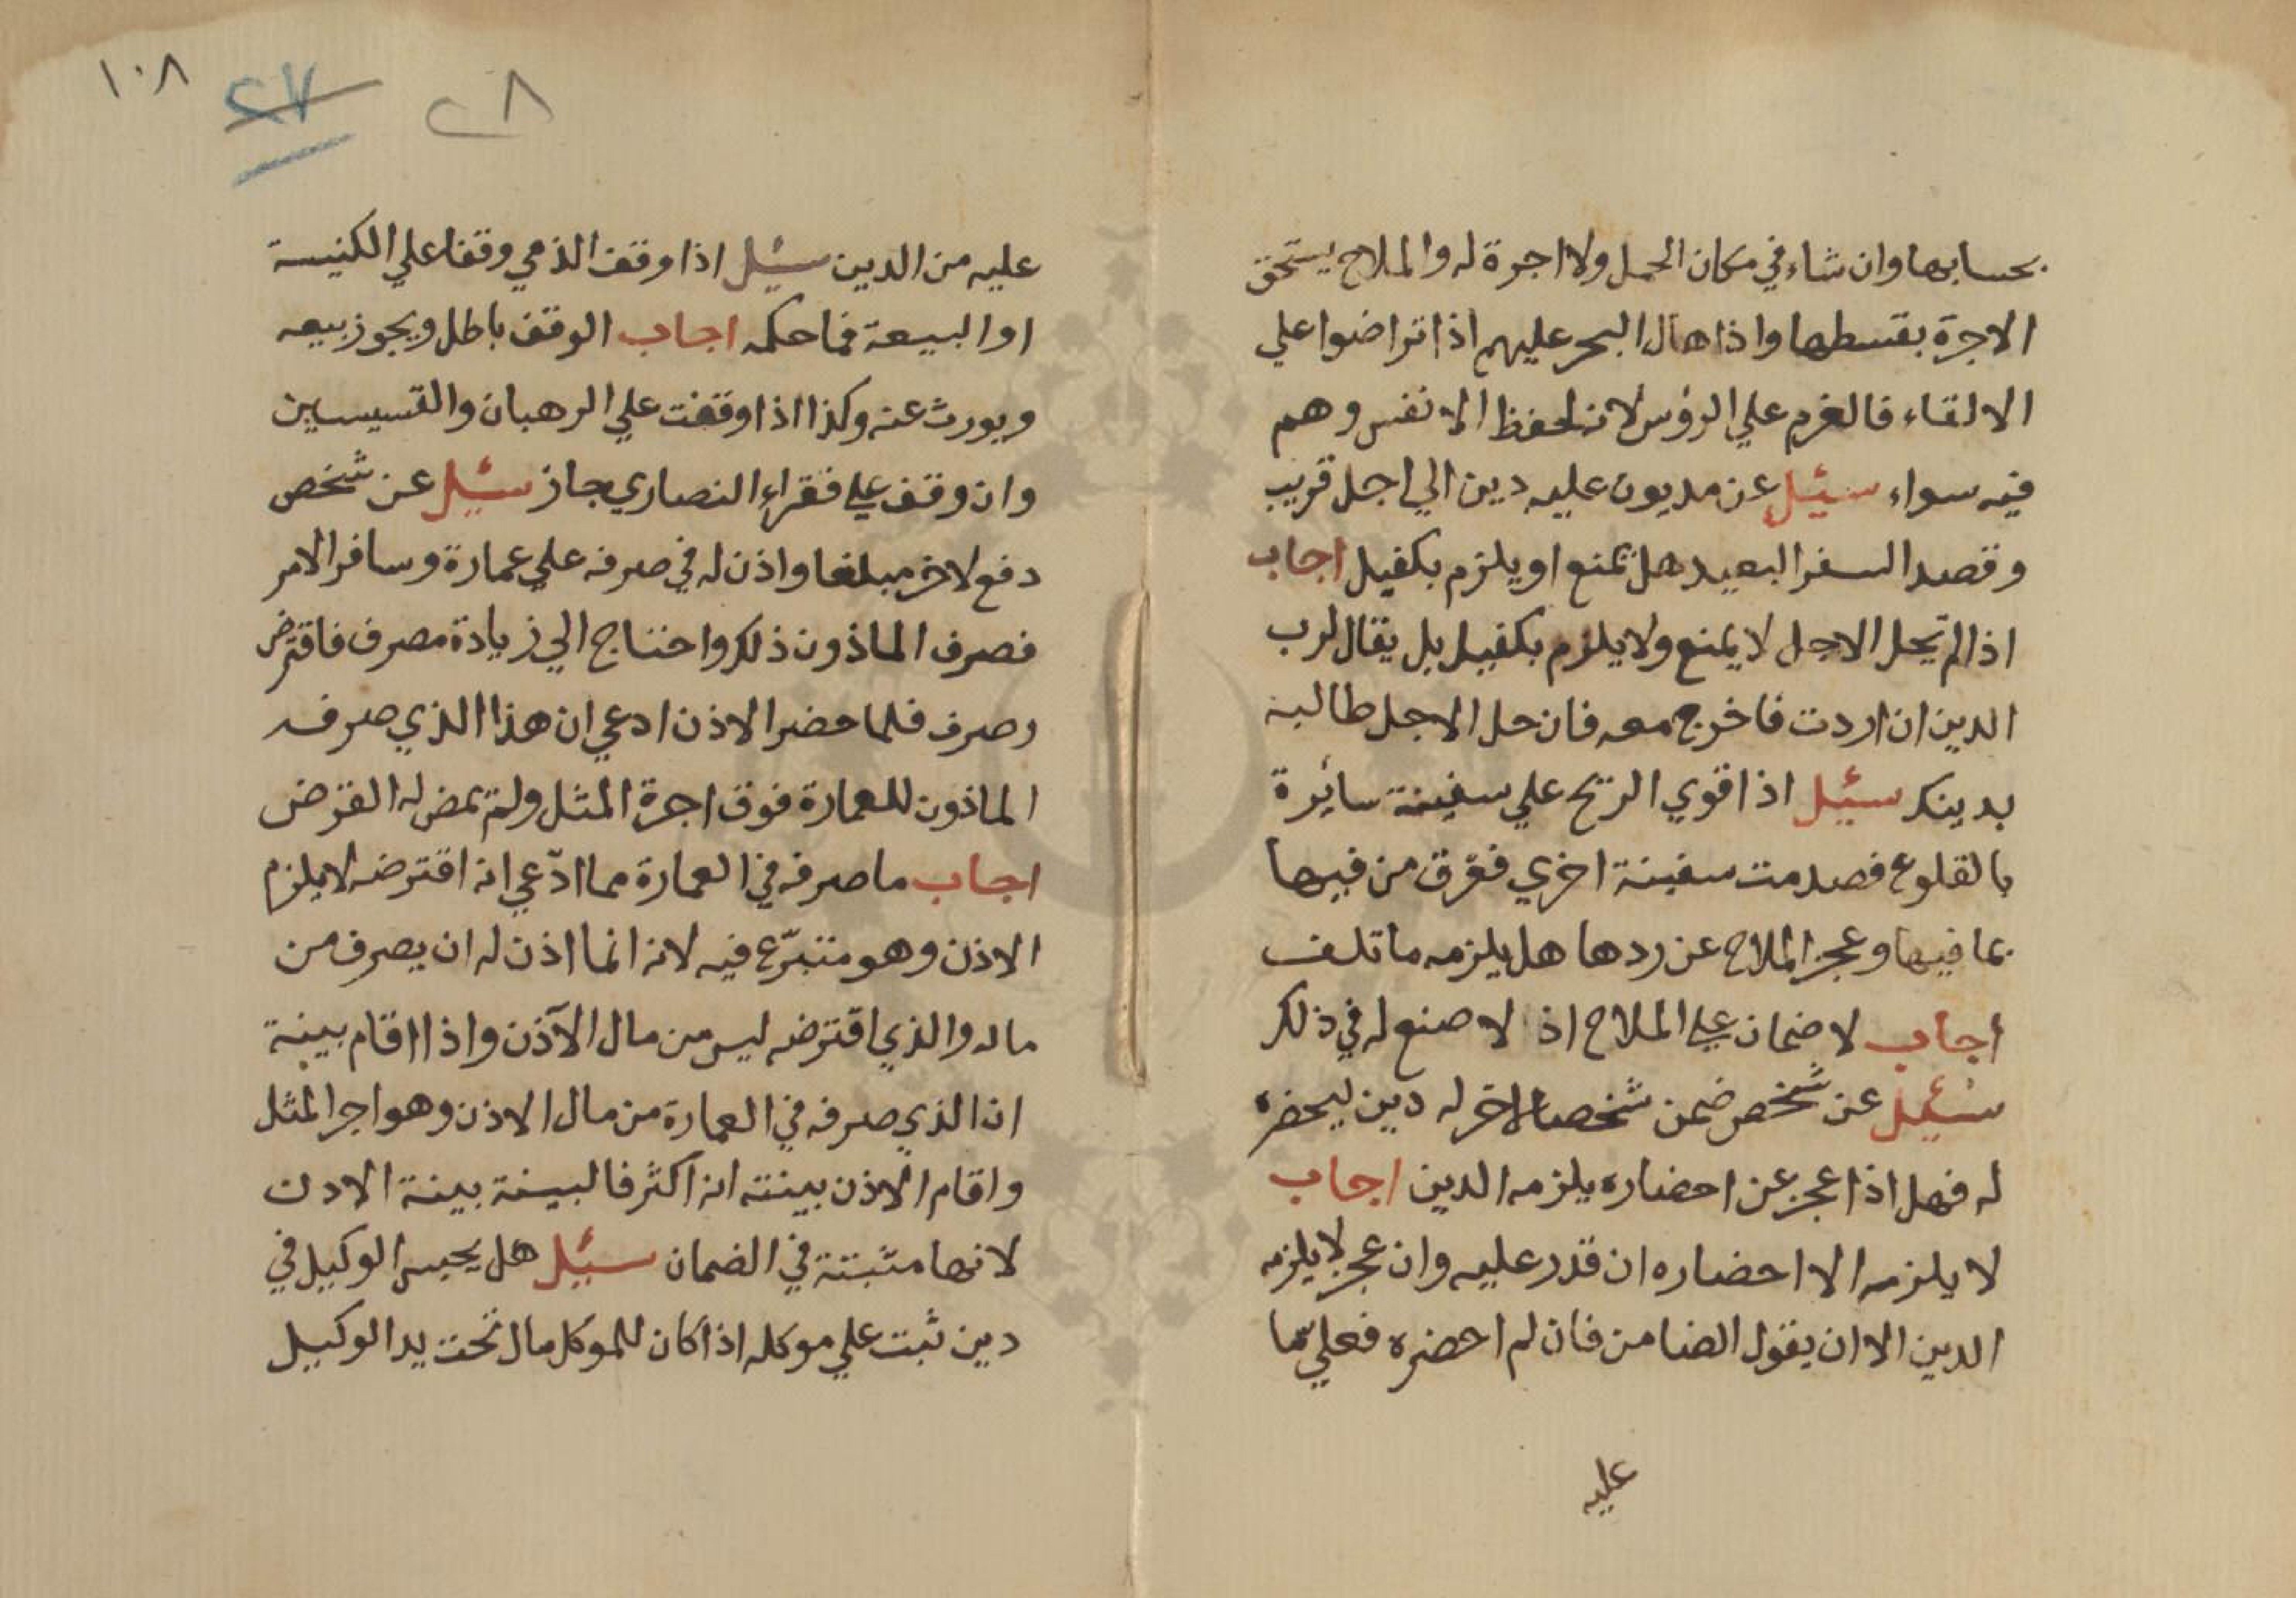 بحسابها وان شاء في مكان الحمل ولا اجرة له والملاح يستحق
الاجرة بقسطها واذا هال البحر عليهم اذا تراضوا علي
الالقاء فالغرم علي الرؤس لانه لحفظ الانفس وهم
فيه سواء سئيل عن مديون عليه دين الي اجل قريب
وقصد السفر البعيد هل يمنع او يلزم بكفيل اجاب
اذا لم يحل الاجل لا يمنع ولا يلزم بكفيل بل يقال لرب
الدين ان اردت فاخرج معه فان حل الاجل طالبه
بدينك سئيل اذا قوي الريح علي سفينة سائرة
بالقلوع فصدمت سفينة اخري فغرق من فيها
بما فيها وعجز الملاح عن ردها هل يلزمه ما تلف
اجاب لا ضمان علي الملاح اذ لا صنع له في ذلك
سئيل عن شخص ضمن شخصا لاخر له دين ليحضره
له فهل اذا عجز عن احضاره يلزمه الدين اجاب
لا يلزمه الا احضاره ان قدر عليه وان عجز لا يلزمه
الدين الا ان يقول الضامن فان لم احضره فعلي ما
عليه
١٠٨
٢٧
٢٨
عليه من الدين سئيل اذا وقف الذمي وقفا علي الكنيسة
او البيعة فما حكمه اجاب الوقف باطل ويجوز بيعه
ويورث عنه وكذا اذا وقفت علي الرهبان والقسيسين
وان وقف علي فقراء النصاري جاز سئيل عن شخص
دفع لاخر مبلغا واذن له في صرفه علي عمارة وسافر الامر
فصرف الماذون ذلك واحتاج الي زيادة مصرف فاقترض
وصرف فلما حضر الاذن ادعي ان هذا الذي صرفه
الماذون للعمارة فوق اجرة المثل ولم يمض له القرض
اجاب ما صرفه في العمارة مما ادّعي انه اقترضه لا يلزم
الاذن وهو متبرّع فيه لانه انما اذن له ان يصرف من
ماله والذي اقترضه ليس من مال الآذن واذا اقام بينة
ان الذي صرفه في العمارة من مال الاذن وهو اجر المثل
واقام الاذن بينته انه اكثر فالبينة بينة الادن
لانها مثبتة في الضمان سئيل هل يحبس الوكيل في
دين ثبت علي موكله اذا كان للموكل مال تحت يد الوكيل